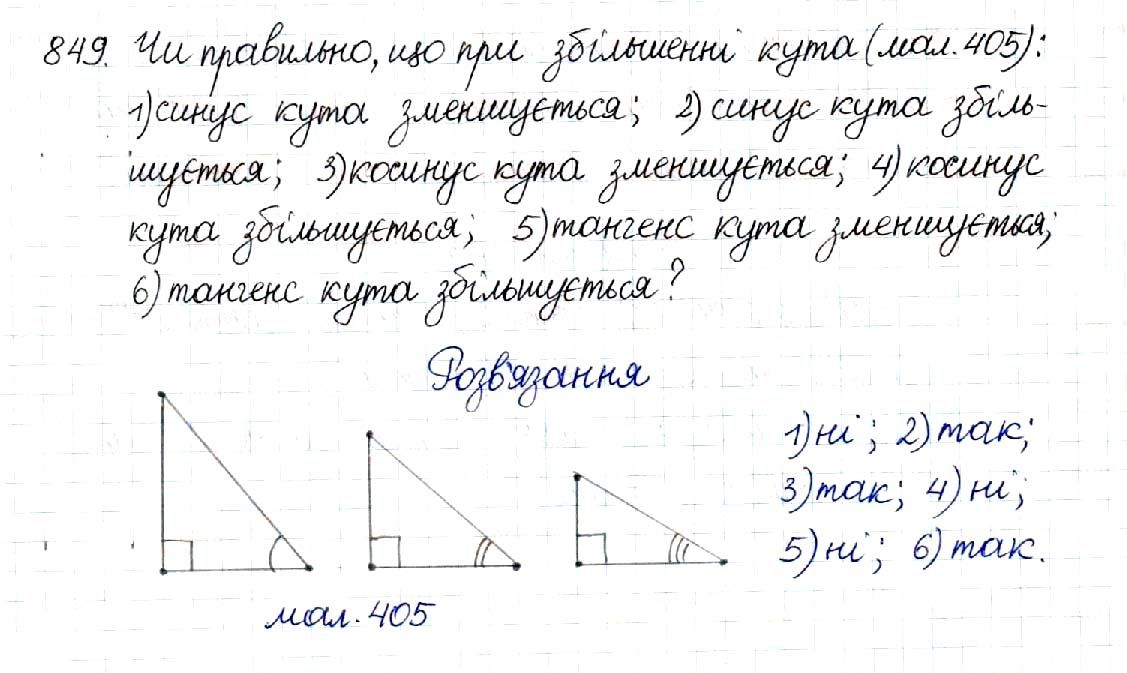 849. Чи правильно, що при збільшенні кута (мал. 405):
1) синус кута зменшується; 2) синус кута збіль-
шується; 3) косинус кута зменшується; 4) косинус
кута збільшується; 5) тангенс кута зменшується;
6) тангенс кута збільшується?
Розв'язання
1) ні; 2) так;
3) так; 4) ні;
5) ні; 6) так.
мал. 405